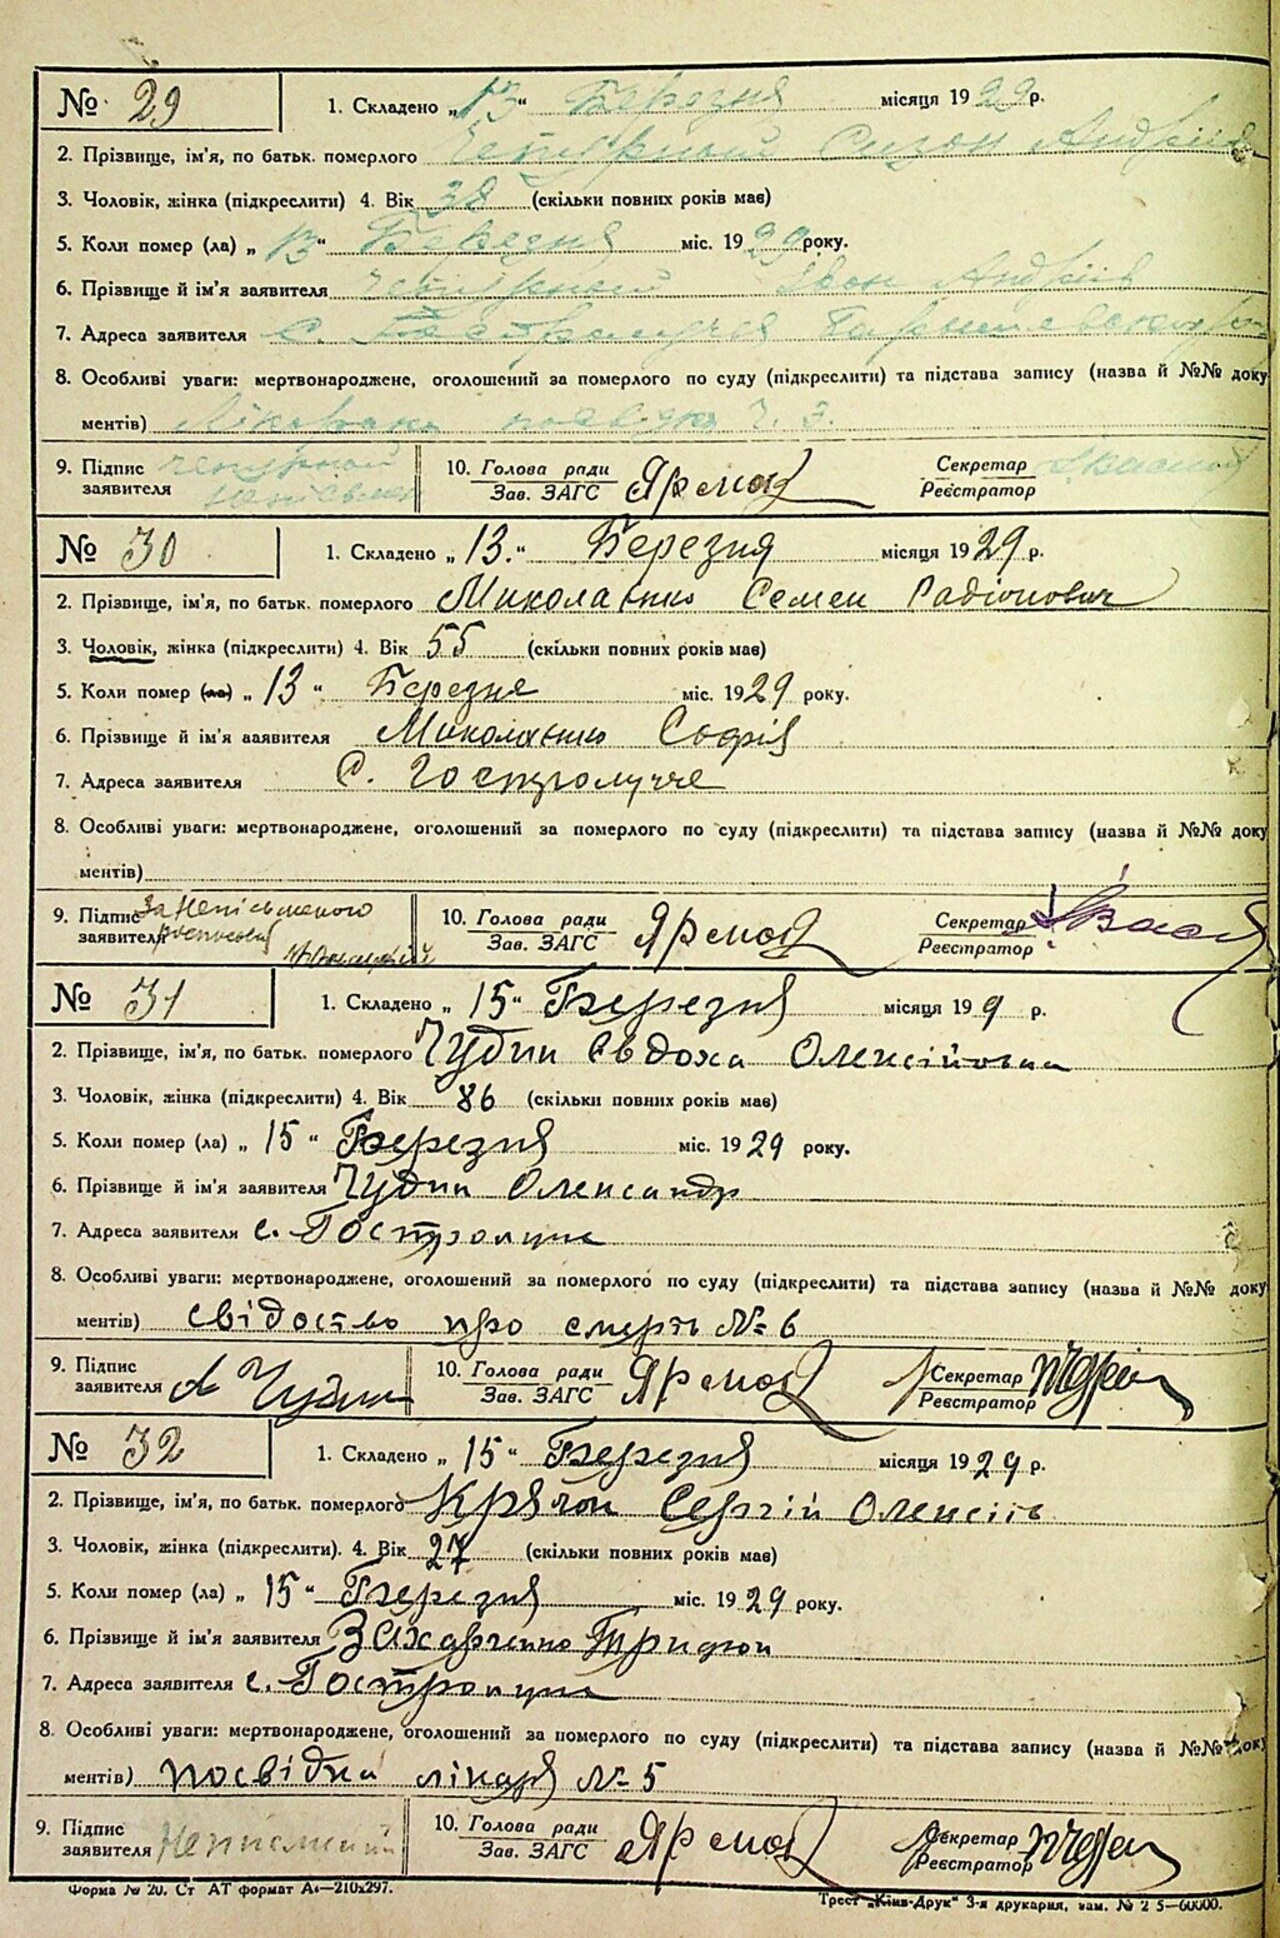 № 29 1. Складено „13“ Березня місяця 1929 р.
2. Прізвище, ім'я, по батьк. померлого Чепурний Сизон Андріїв
3. Чоловік, жінка (підкреслити) 4. Вік 38 (скільки повних років має)
5. Коли помер (ла) „13“ Березня міс. 1929 року.
6. Прізвище й ім'я заявителя Чепурний Іван Андріїв
7. Адреса заявителя с.
8. Особливі уваги: мертвонароджене, оголошений за померлого по суду (підкреслити) та підстава запису (назва й №№ доку
ментів) Лікарська посвідка ч. 3.
9. Підпис Чепурний 10. Голова ради Ярмол Секретар
заявителя Зав. ЗАГС Реєстратор
№ 30 1. Складено „13.“ Березня місяця 1929 р.
2. Прізвище, ім'я, по батьк. померлого Миколаєнко Семен Радіонович
3. Чоловік, жінка (підкреслити) 4. Вік 55 (скільки повних років має)
5. Коли помер (ла) „13“ Березня міс. 1929 року.
6. Прізвище й ім'я заявителя Миколаєнко Софія
7. Адреса заявителя с. Гостролуччє
8. Особливі уваги: мертвонароджене, оголошений за померлого по суду (підкреслити) та підстава запису (назва й №№ доку
ментів)
9. Підпис За неписьменого 10. Голова ради Ярмол Секретар
заявителя росписовся Зав. ЗАГС Реєстратор
№ 31 1. Складено „15“ Березня місяця 199 р.
2. Прізвище, ім'я, по батьк. померлого Чудин Євдоха Олексійовна
3. Чоловік, жінка (підкреслити) 4. Вік 86 (скільки повних років має)
5. Коли помер (ла) „15“ Березня міс. 1929 року.
6. Прізвище й ім'я заявителя Чудин Олександр
7. Адреса заявителя с. Гостролуче
8. Особливі уваги: мертвонароджене, оголошений за померлого по суду (підкреслити) та підстава запису (назва й №№ доку
ментів) свідоство про смерть № 6
9. Підпис А Чудин 10. Голова ради Ярмол Секретар
заявителя Зав. ЗАГС Реєстратор
№ 32 1. Складено „15“ Березня місяця 1929 р.
2. Прізвище, ім'я, по батьк. померлого Крячок Сергій Олексіїв
3. Чоловік, жінка (підкреслити). 4. Вік 27 (скільки повних років має)
5. Коли помер (ла) „15“ Березня міс. 1929 року.
6. Прізвище й ім'я заявителя Захарченко Трифон
7. Адреса заявителя с. Гостролуче
8. Особливі уваги: мертвонароджене, оголошений за померлого по суду (підкреслити) та підстава запису (назва й №№ доку
ментів) посвідка лікаря № 5
9. Підпис Неписьмений 10. Голова ради Ярмол Секретар
заявителя Зав. ЗАГС Реєстратор
Форма № 20. Ст АТ формат А₄—210x297. Трест „Київ-Друк“ 3-я друкарня, зам. № 2 5—60000.